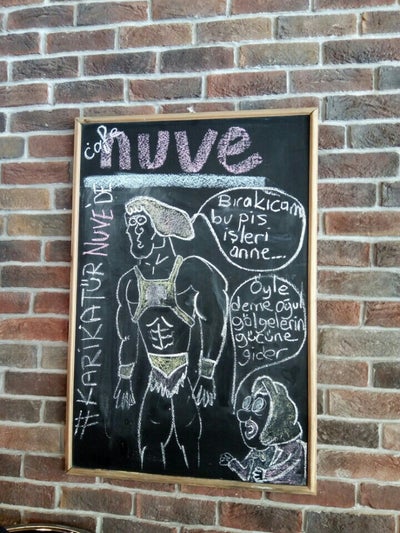 cafe
nuve
#KARİKATÜR NUVE DE
Bırakıcam
bu pis
işleri
anne...
Öyle
deme oğul
gölgelerin
gücüne
gider